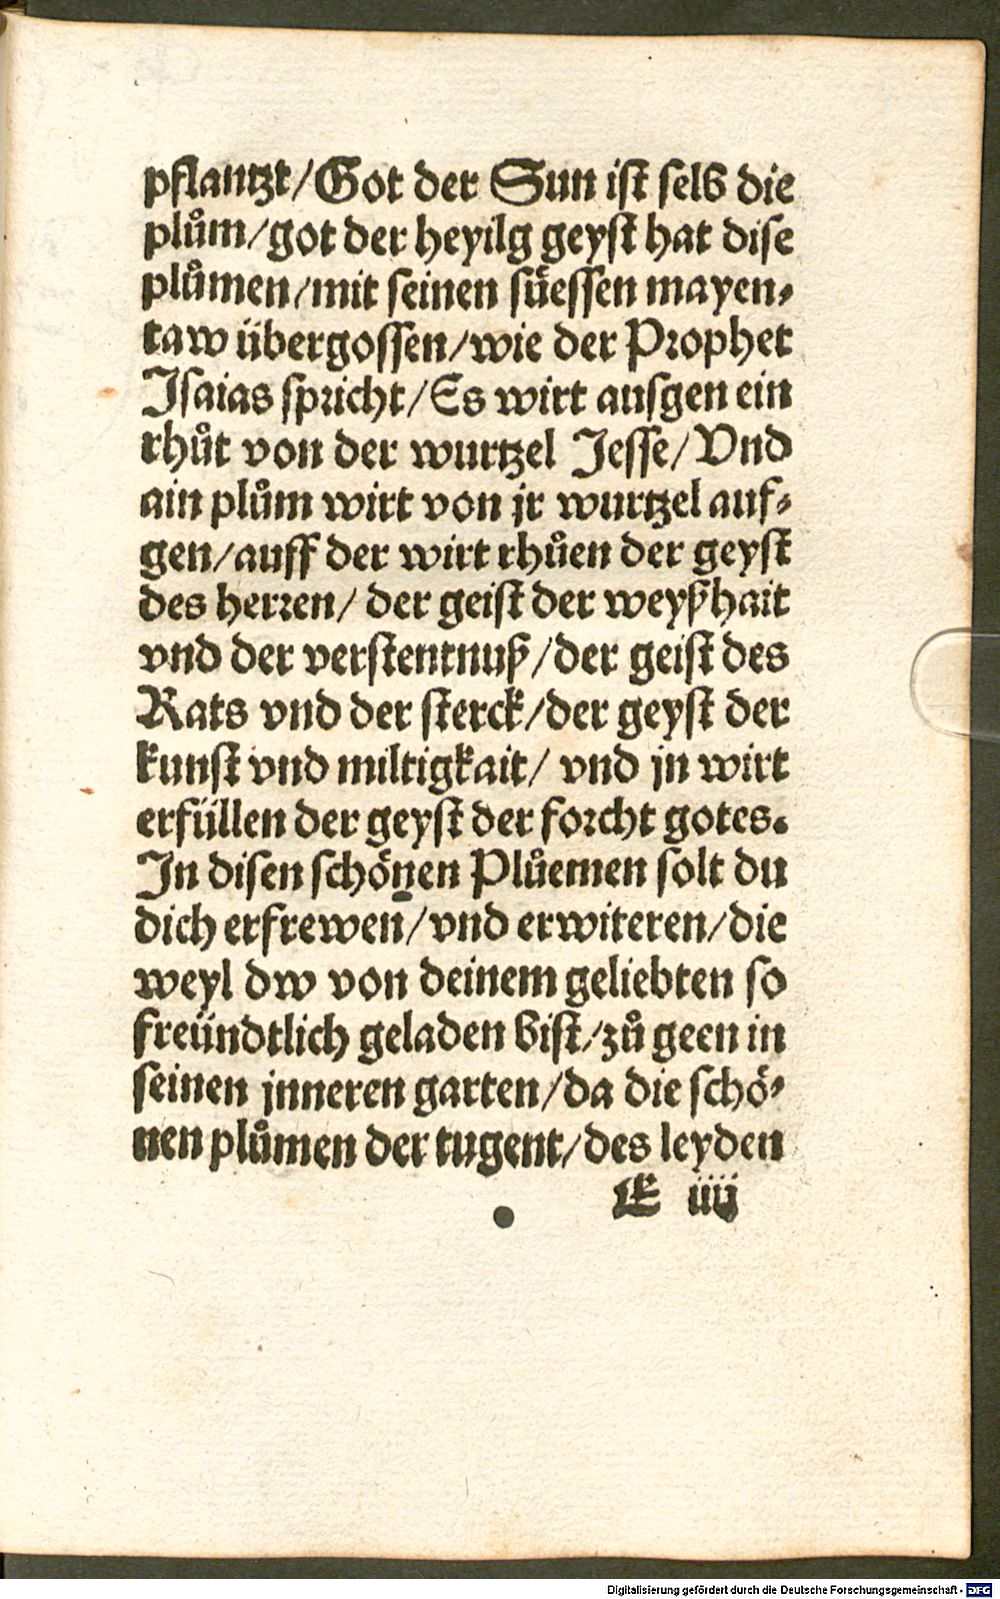 pflantzt/Got der Sun ist selb die
plům/got der heyilg geyst hat dise
plůmen/mit seinen süessen mayen-
taw übergossen/wie der Prophet
Isaias spricht/Es wirt ausgen ein
rhůt von der wurtzel Jesse/Vnd
ain plům wirt von jr wurtzel auf-
gen/auff der wirt rhůen der geyst
des herren/ der geist der weyßhait
vnd der verstentnuß/der geist des
Rats vnd der sterck/der geyst der
kunst vnd miltigkait/ vnd jn wirt
erfüllen der geyst der forcht gotes.
In disen schönen Plůemen solt du
dich erfrewen/vnd erwiteren/die
weyl dw von deinem geliebten so
freündtlich geladen bist/zů geen in
seinen jnneren garten/da die schö-
nen plůmen der tugent/des leyden
E iiij
Digitalisierung gefördert durch die Deutsche Forschungsgemeinschaft - DFG